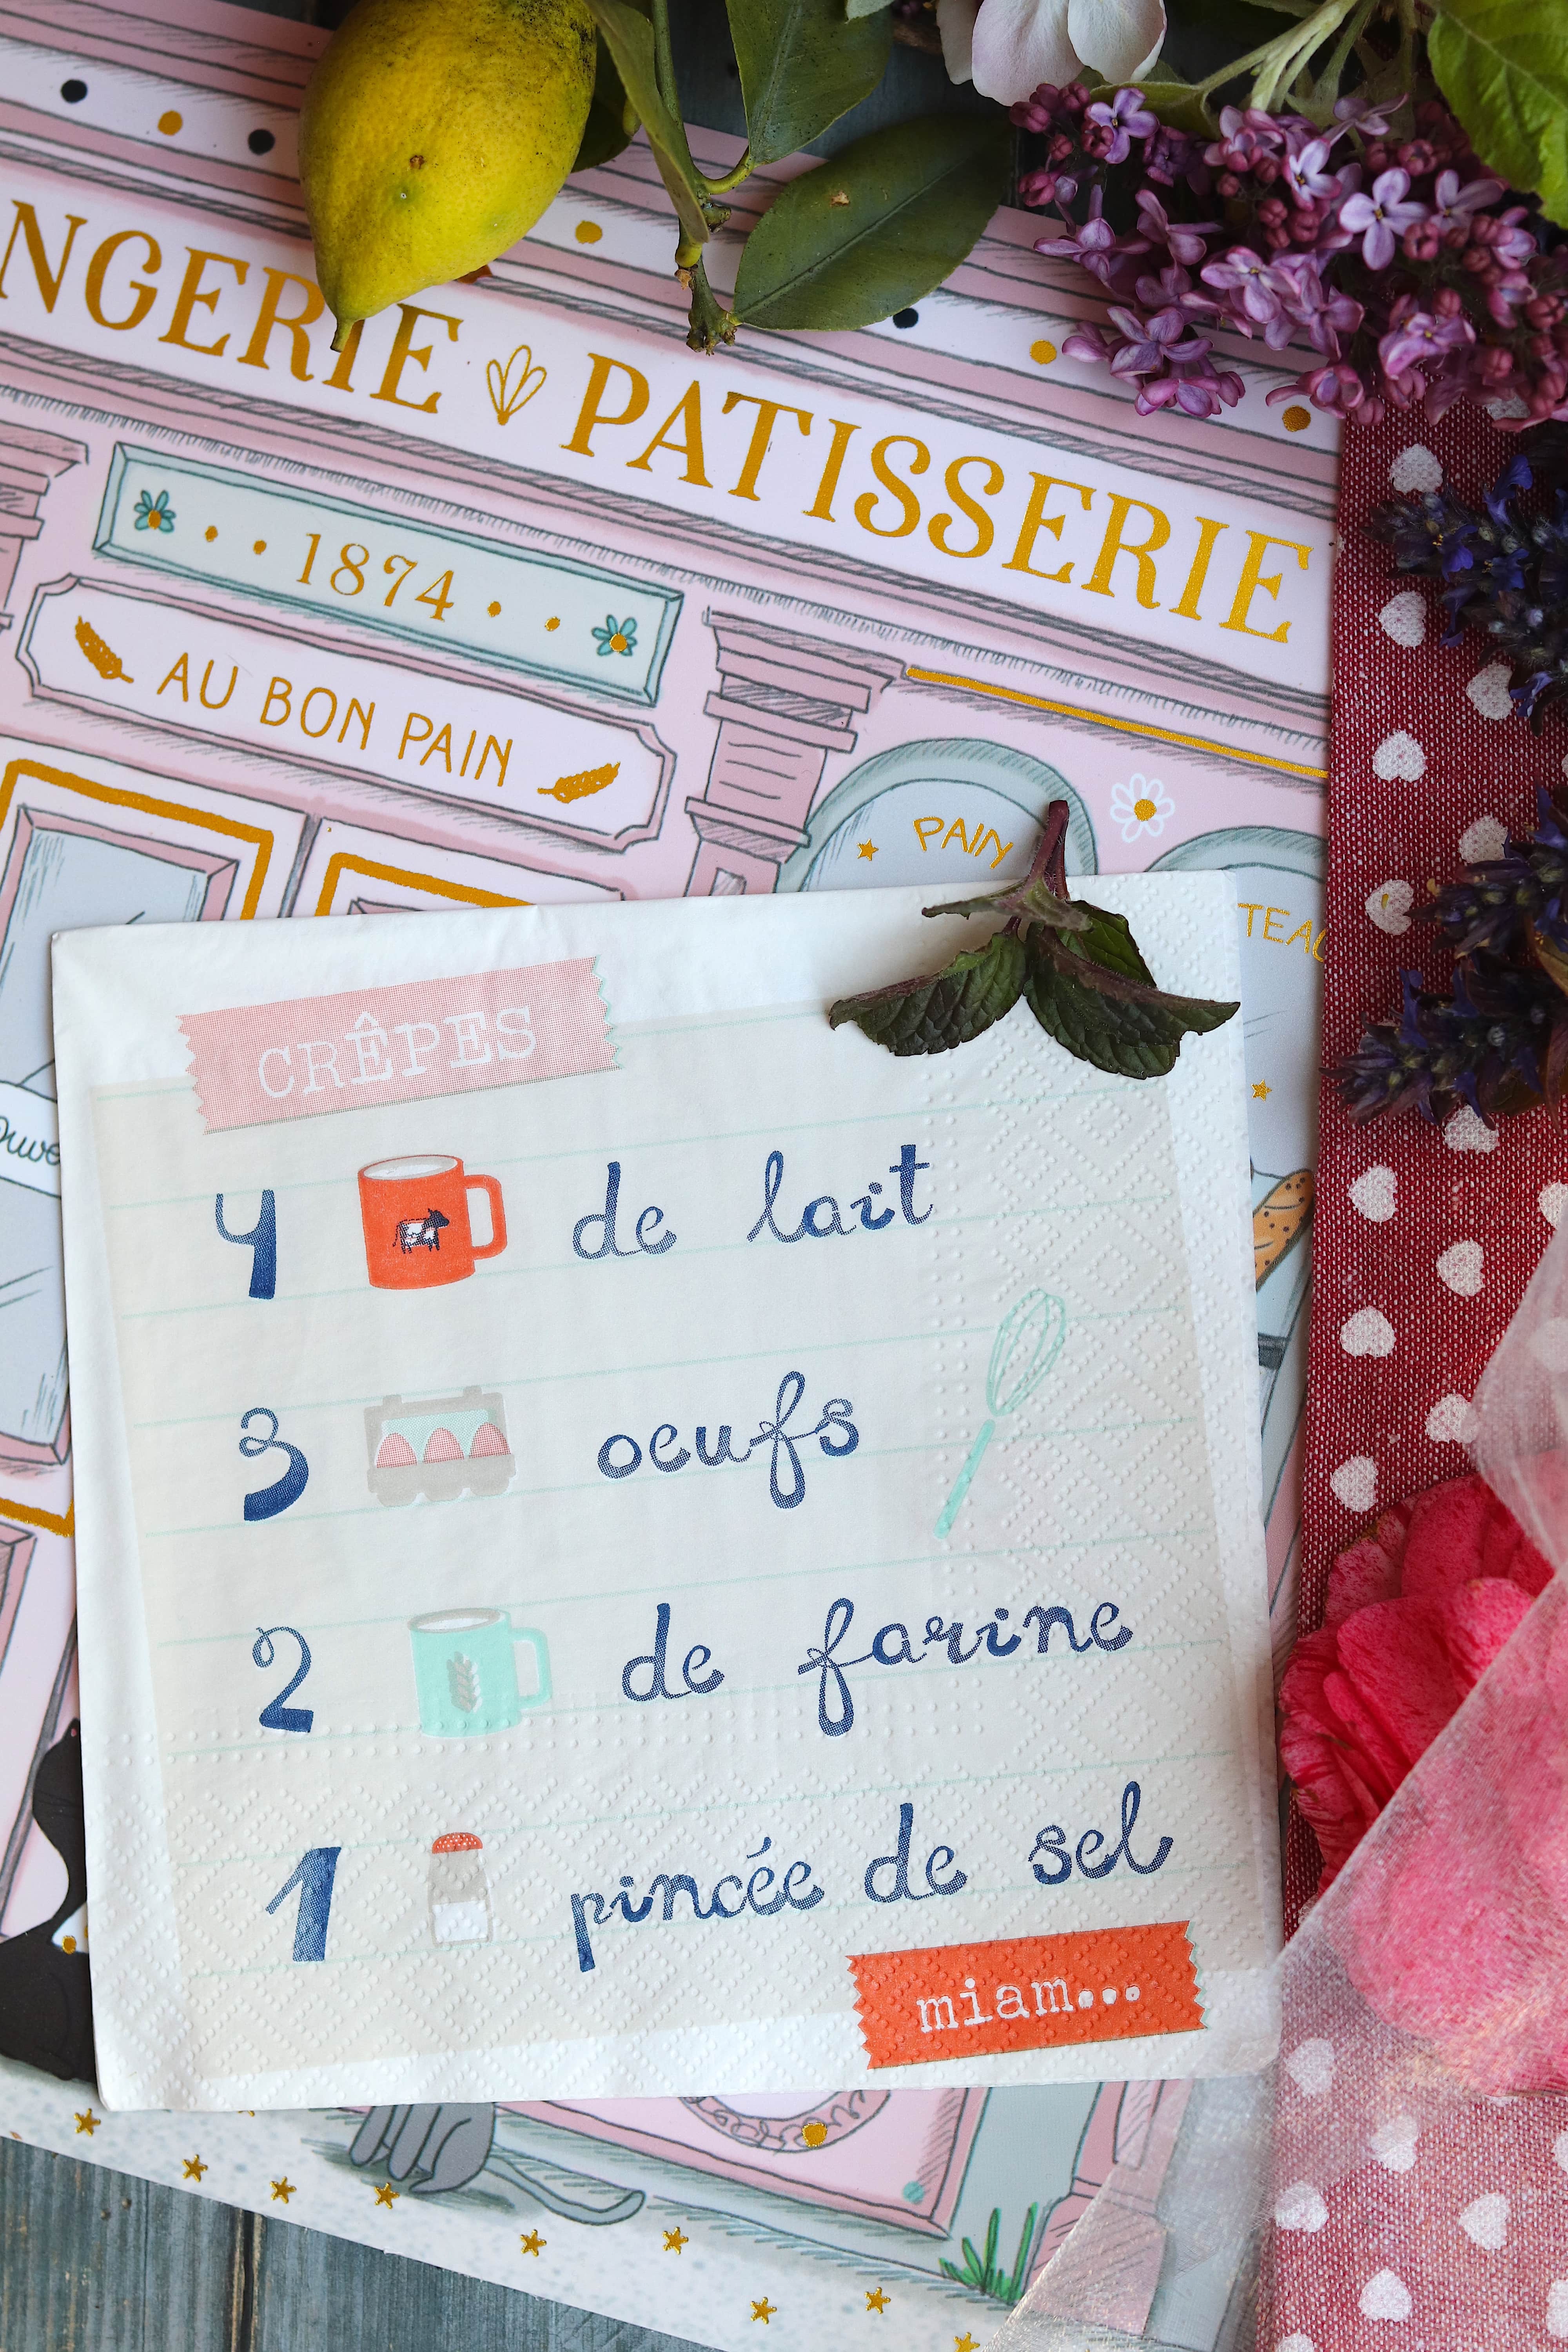 NGERIE PATISSERIE
1874
AU BON PAIN
PAIN
CRÊPES
4 de lait
3 oeufs
2 de farine
1 pincée de sel
miam...